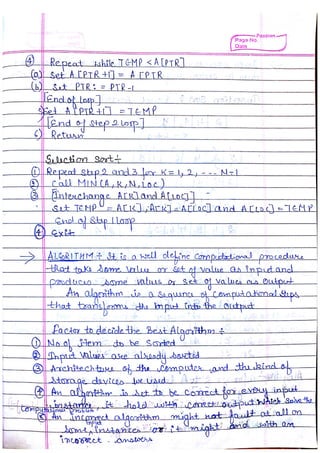 Page No.
Date
④ Repeat while TEMP < A[PTR]
(a) Set A [PTR+1] = A [PTR
(b) Set PTR: = PTR-1
[End of loop]
Set A [PTR+1] = TEMP
[End of step 2 loop]
6) Return
Selection sort ÷
① Repeat step 2 and 3 for K = 1, 2, --- N-1
② Call MIN (A, K, N, LOC)
③ [Interchange A[K] and A[LOC]]
Set TEMP = A[K], A[K] = A[LOC] and A[LOC] = TEMP
End of Step 1 loop
④ Exit
→ ALGORITHM ÷ It is a well define computational procedure
that take some value or set of value as Input and
produces some values or set of values as output
An algorithm is a sequence of computational steps
that transforms the Input into the output
Factor to decide the Best Algorithm ÷
① No of Item to be Sorted
② Input Values are already sorted
③ Architechture of the computer and the kind of
Storage devices be used
④ An algorithm is set to be correct for every input
instance, it hold with correct output which solve the
(Computational problem)
⑤ An incorrect algorithm might not at all on
some instances or it might end with an
incorrect answers